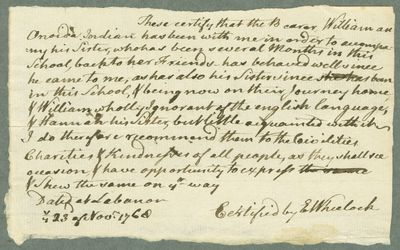 These certify that the Bearer William an
Oneida Indian has been with me in order to accompa-
ny his Sister, who has been several Months in this
School, back to her Friends has behaved well since
he came to me, as has also his Sister since she has been
in this School, & being now on their Journey home,
& William wholly Ignorant of the english Language,
& Hannah his Sister, but little acquainted with it
I do therefore recommend them to the Civilities
Charities & Kindnesses of all people, as they shall see
occasion & have opportunity to express the same
& Shew the same on yr way
Dated at Lebanon
ye 23 of Novr 1768
Certified by E Wheelock